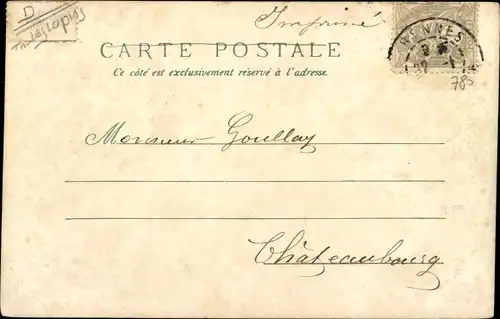 D
Imprimé
RENNES
CARTE POSTALE
Ce côté est exclusivement réservé à l'adresse.
785
Monsieur Goullay
Châteaubourg